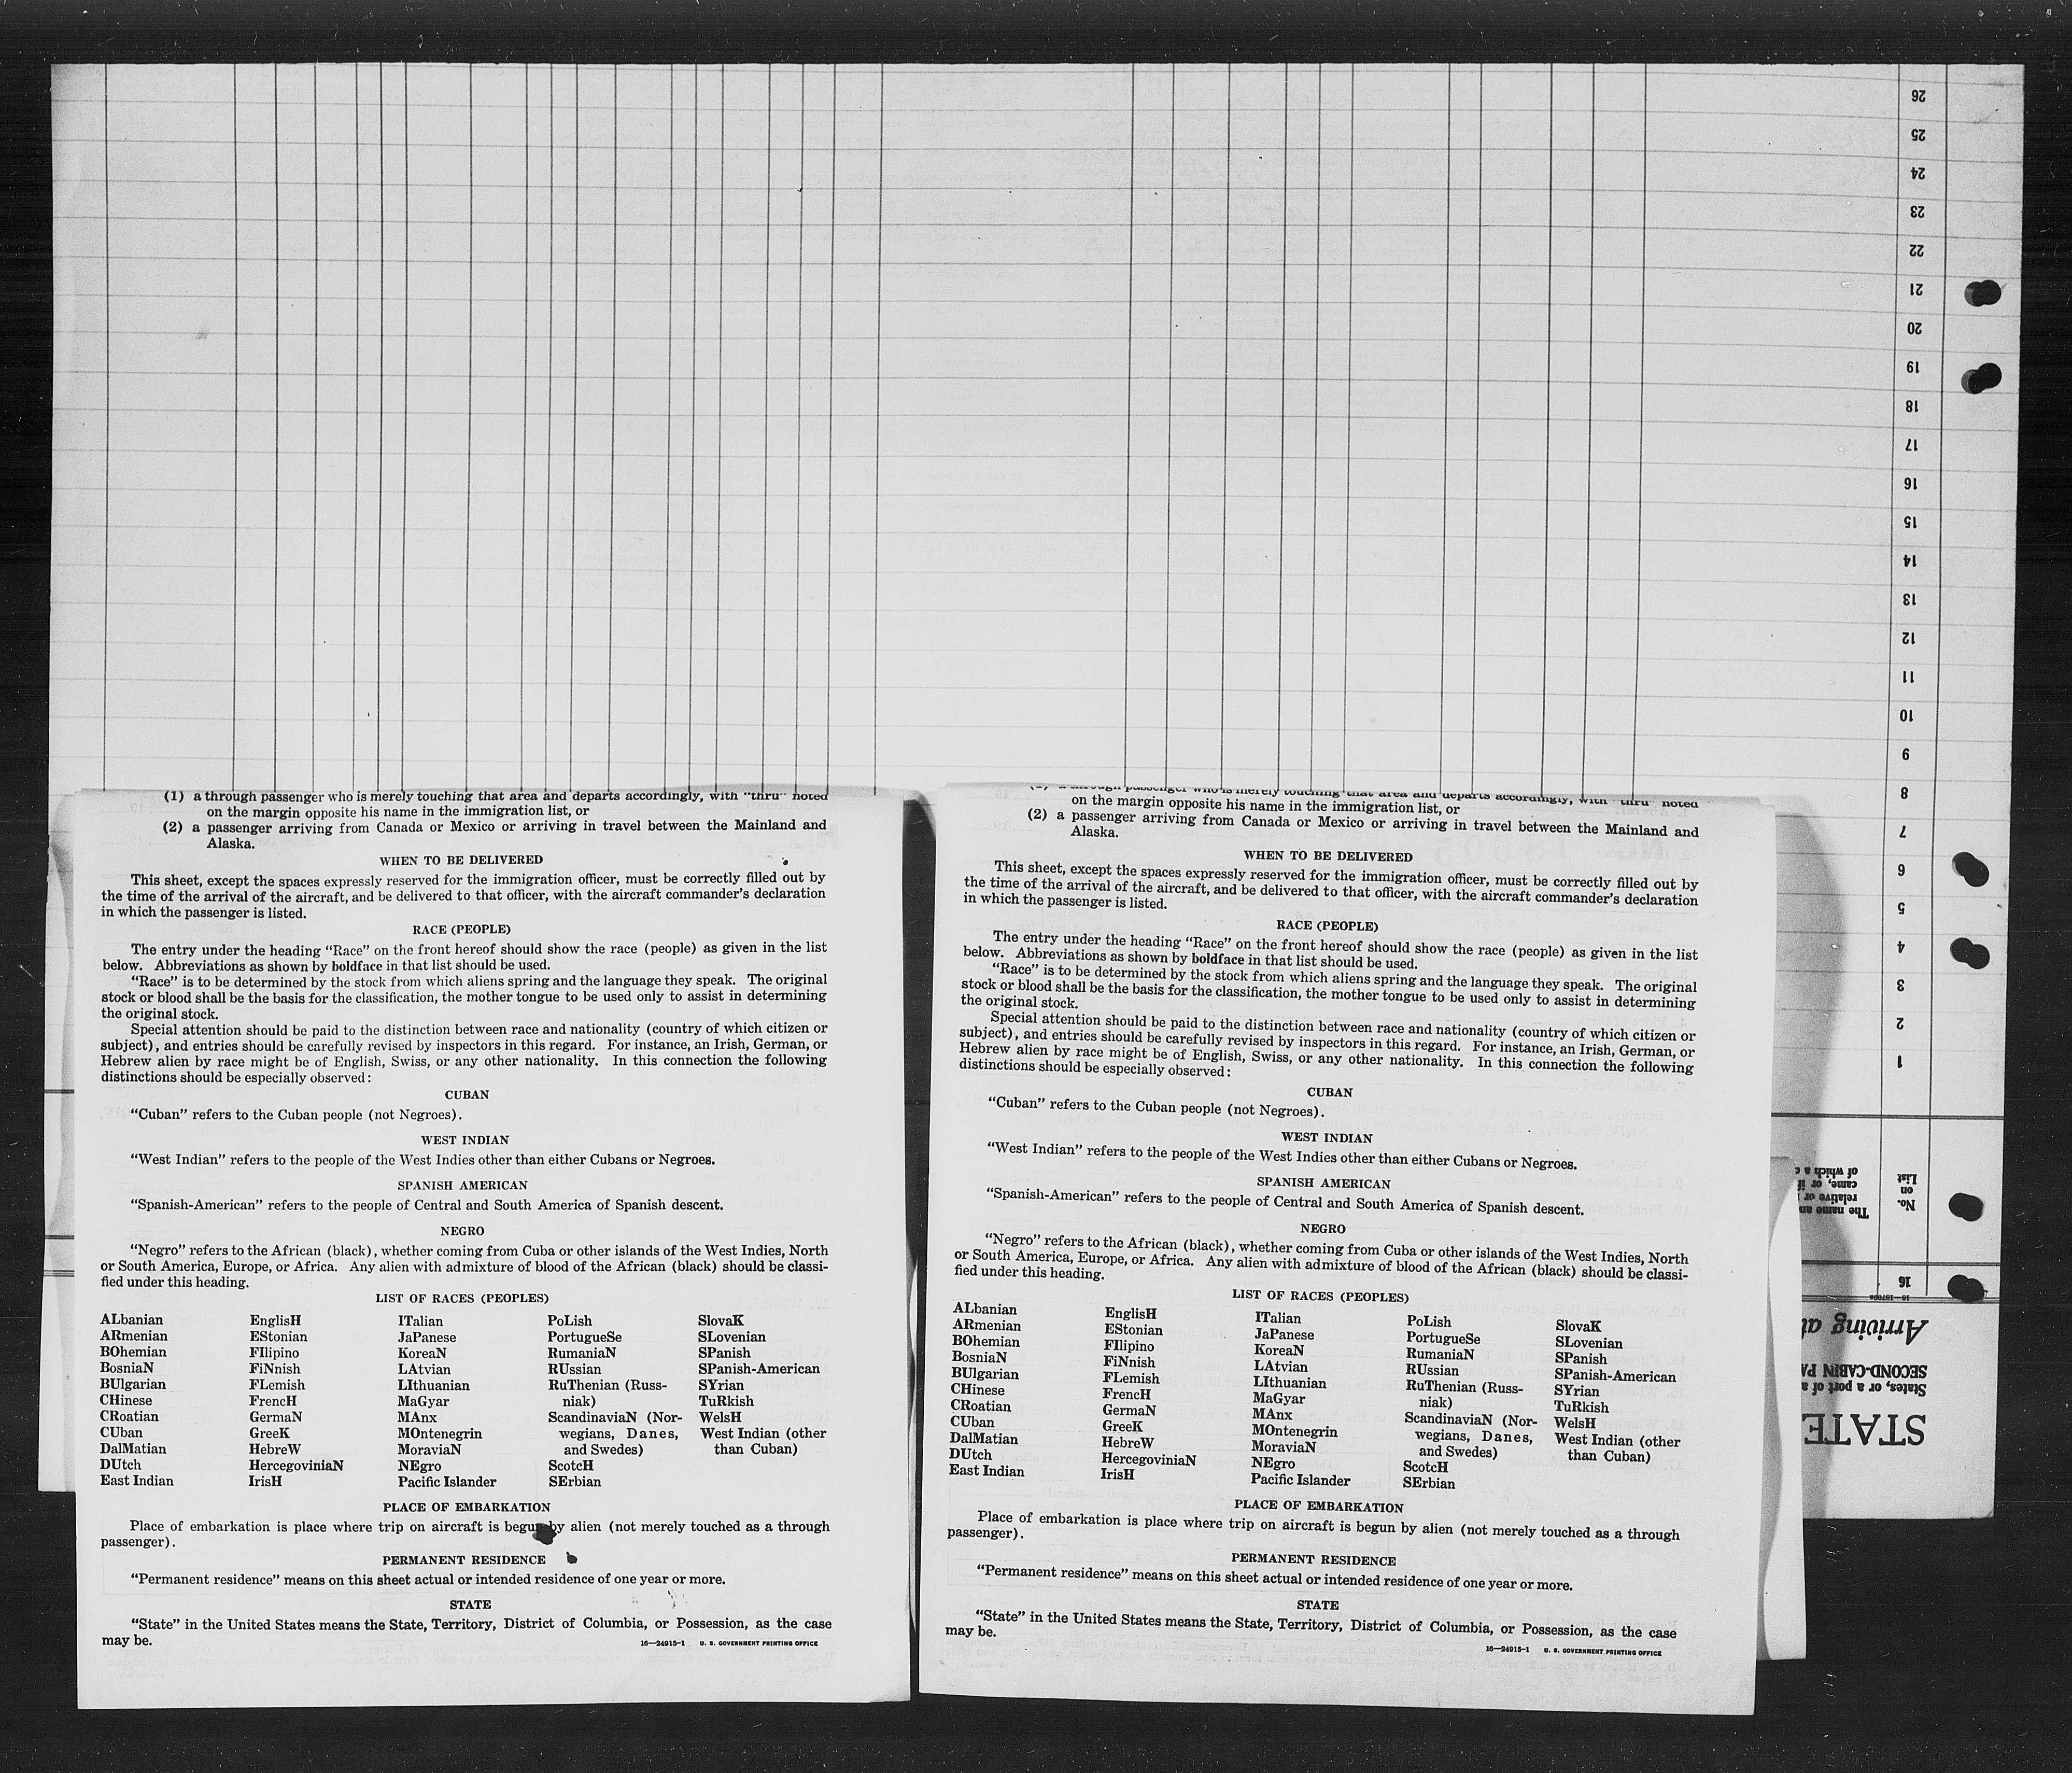 26
25
24
23
22
21
20
19
18
17
16
15
14
13
12
11
10
9
8
7
6
5
4
3
2
1
(1) a through passenger who is merely touching that area and departs accordingly, with "thru" noted
on the margin opposite his name in the immigration list, or
(2) a passenger arriving from Canada or Mexico or arriving in travel between the Mainland and
Alaska.
WHEN TO BE DELIVERED
This sheet, except the spaces expressly reserved for the immigration officer, must be correctly filled out by
the time of the arrival of the aircraft, and be delivered to that officer, with the aircraft commander's declaration
in which the passenger is listed.
RACE (PEOPLE)
The entry under the heading "Race" on the front hereof should show the race (people) as given in the list
below. Abbreviations as shown by boldface in that list should be used.
"Race" is to be determined by the stock from which aliens spring and the language they speak. The original
stock or blood shall be the basis for the classification, the mother tongue to be used only to assist in determining
the original stock.
Special attention should be paid to the distinction between race and nationality (country of which citizen or
subject), and entries should be carefully revised by inspectors in this regard. For instance, an Irish, German, or
Hebrew alien by race might be of English, Swiss, or any other nationality. In this connection the following
distinctions should be especially observed:
CUBAN
"Cuban" refers to the Cuban people (not Negroes).
WEST INDIAN
"West Indian" refers to the people of the West Indies other than either Cubans or Negroes.
SPANISH AMERICAN
"Spanish-American" refers to the people of Central and South America of Spanish descent.
NEGRO
"Negro" refers to the African (black), whether coming from Cuba or other islands of the West Indies, North
or South America, Europe, or Africa. Any alien with admixture of blood of the African (black) should be classi-
fied under this heading.
LIST OF RACES (PEOPLES)
ALbanian
ARmenian
BOhemian
BosniaN
BUlgarian
CHinese
CRoatian
CUban
DalMatian
DUtch
East Indian
EnglisH
EStonian
FIlipino
FiNnish
FLemish
FrencH
GermaN
GreeK
HebreW
HercegoviniaN
IrisH
ITalian
JaPanese
KoreaN
LAtvian
LIthuanian
MaGyar
MAnx
MOntenegrin
MoraviaN
NEgro
Pacific Islander
PoLish
PortugueSe
RumaniaN
RUssian
RuThenian (Russ-
niak)
ScandinaviaN (Nor-
wegians, Danes,
and Swedes)
ScotcH
SErbian
SlovaK
SLovenian
SPanish
SPanish-American
SYrian
TuRkish
WelsH
West Indian (other
than Cuban)
PLACE OF EMBARKATION
Place of embarkation is place where trip on aircraft is begun by alien (not merely touched as a through
passenger).
PERMANENT RESIDENCE
"Permanent residence" means on this sheet actual or intended residence of one year or more.
STATE
"State" in the United States means the State, Territory, District of Columbia, or Possession, as the case
may be.
16—24915-1 U. S. GOVERNMENT PRINTING OFFICE
(1) a through passenger who is merely touching that area and departs accordingly, with "thru" noted
on the margin opposite his name in the immigration list, or
(2) a passenger arriving from Canada or Mexico or arriving in travel between the Mainland and
Alaska.
WHEN TO BE DELIVERED
This sheet, except the spaces expressly reserved for the immigration officer, must be correctly filled out by
the time of the arrival of the aircraft, and be delivered to that officer, with the aircraft commander's declaration
in which the passenger is listed.
RACE (PEOPLE)
The entry under the heading "Race" on the front hereof should show the race (people) as given in the list
below. Abbreviations as shown by boldface in that list should be used.
"Race" is to be determined by the stock from which aliens spring and the language they speak. The original
stock or blood shall be the basis for the classification, the mother tongue to be used only to assist in determining
the original stock.
Special attention should be paid to the distinction between race and nationality (country of which citizen or
subject), and entries should be carefully revised by inspectors in this regard. For instance, an Irish, German, or
Hebrew alien by race might be of English, Swiss, or any other nationality. In this connection the following
distinctions should be especially observed:
CUBAN
"Cuban" refers to the Cuban people (not Negroes).
WEST INDIAN
"West Indian" refers to the people of the West Indies other than either Cubans or Negroes.
SPANISH AMERICAN
"Spanish-American" refers to the people of Central and South America of Spanish descent.
NEGRO
"Negro" refers to the African (black), whether coming from Cuba or other islands of the West Indies, North
or South America, Europe, or Africa. Any alien with admixture of blood of the African (black) should be classi-
fied under this heading.
LIST OF RACES (PEOPLES)
ALbanian
ARmenian
BOhemian
BosniaN
BUlgarian
CHinese
CRoatian
CUban
DalMatian
DUtch
East Indian
EnglisH
EStonian
FIlipino
FiNnish
FLemish
FrencH
GermaN
GreeK
HebreW
HercegoviniaN
IrisH
ITalian
JaPanese
KoreaN
LAtvian
LIthuanian
MaGyar
MAnx
MOntenegrin
MoraviaN
NEgro
Pacific Islander
PoLish
PortugueSe
RumaniaN
RUssian
RuThenian (Russ-
niak)
ScandinaviaN (Nor-
wegians, Danes,
and Swedes)
ScotcH
SErbian
SlovaK
SLovenian
SPanish
SPanish-American
SYrian
TuRkish
WelsH
West Indian (other
than Cuban)
PLACE OF EMBARKATION
Place of embarkation is place where trip on aircraft is begun by alien (not merely touched as a through
passenger).
PERMANENT RESIDENCE
"Permanent residence" means on this sheet actual or intended residence of one year or more.
STATE
"State" in the United States means the State, Territory, District of Columbia, or Possession, as the case
may be.
16—24915-1 U. S. GOVERNMENT PRINTING OFFICE
STATE
States, or a port of a
SECOND-CABIN PA
Arriving at
16
No.
on
List
The name an
relative or
came, or if
of which a c